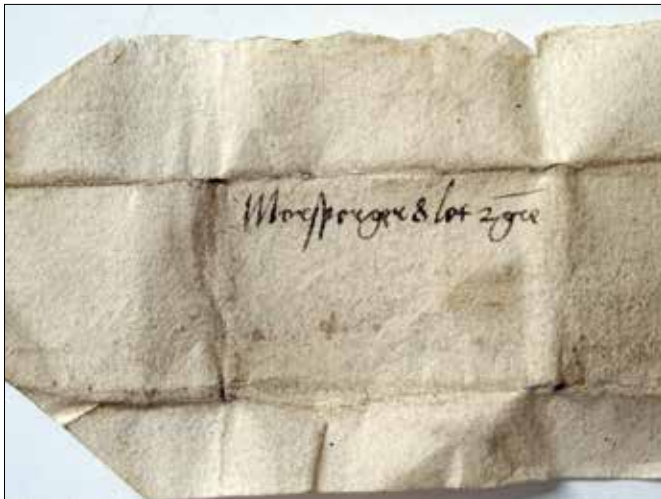 Morsperger 8 lot 2 gre